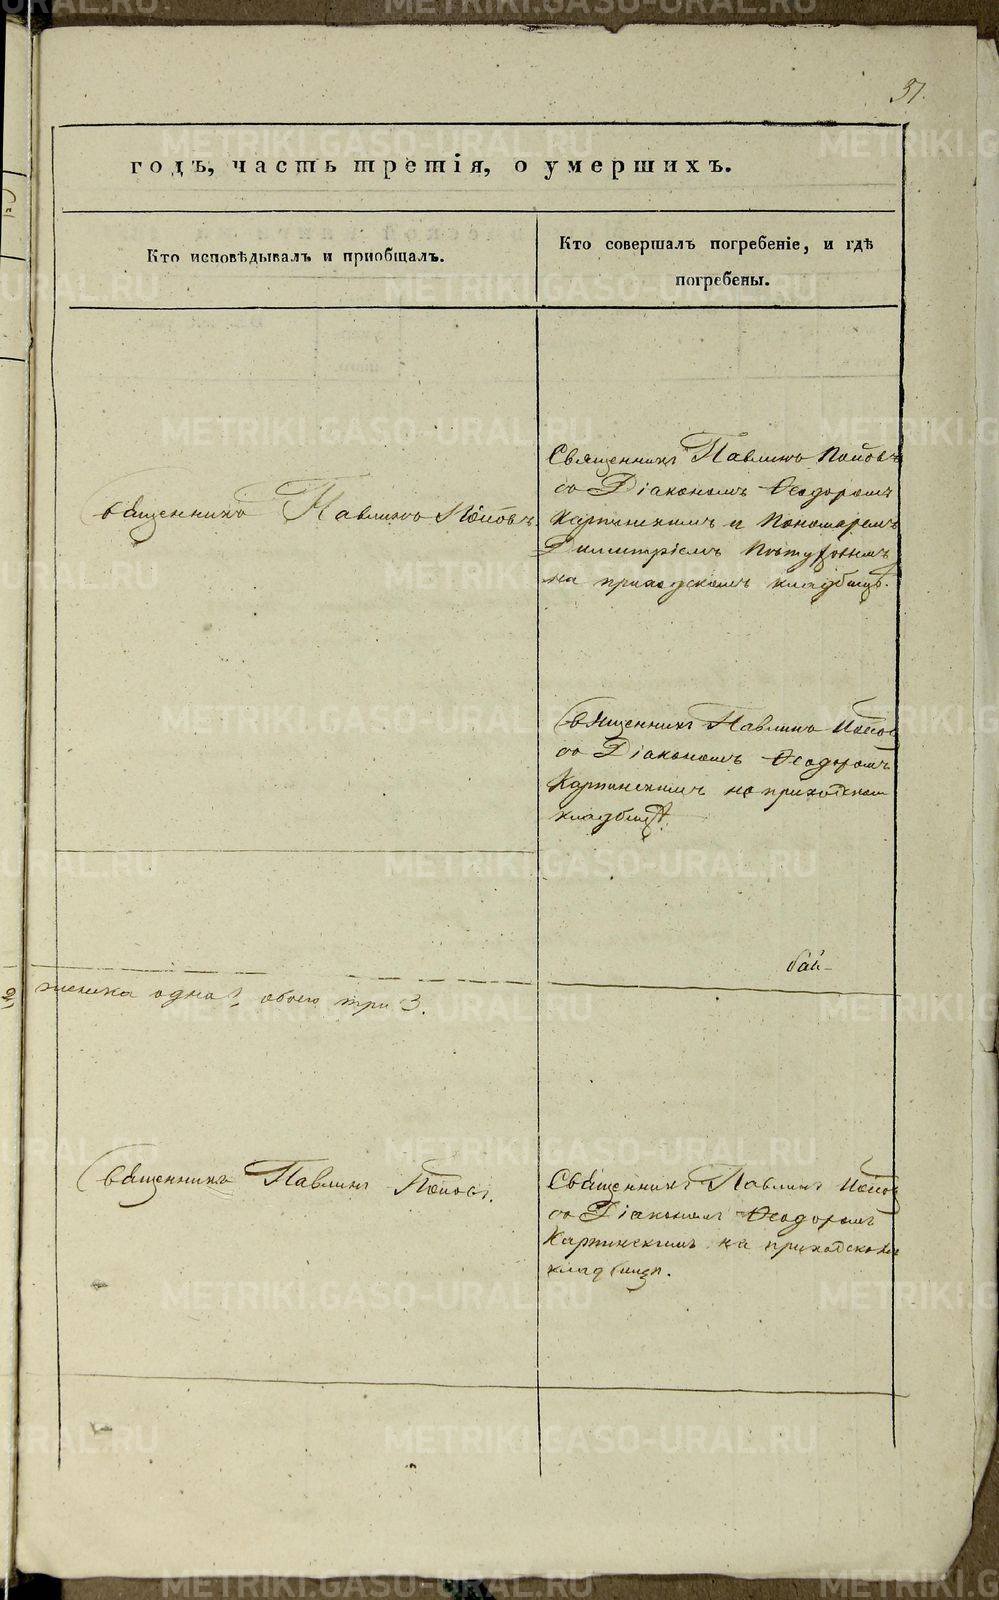 37.
годъ, часть третія, о умершихъ.
Кто исповѣдывалъ и приобщалъ.
Кто совершалъ погребеніе, и гдѣ
погребены.
Священникъ Павлинъ Поповъ
Священникъ Павлинъ Поповъ
со Діакономъ Ѳеодоромъ
Карпинскимъ и Пономаремъ
Димитріемъ
на приходскомъ кладбищѣ.
Священникъ Павлинъ Попов
со Діакономъ Ѳеодоромъ
Карпинскимъ на приходском
кладбищѣ.
одна, обоего три 3.
Священникъ Павлинъ Поповъ.
Священникъ Павлинъ Попов
со Діакономъ Ѳеодоромъ
Карпинскимъ на приходскомъ
кладбищѣ.
METRIKI.GASO-URAL.RU